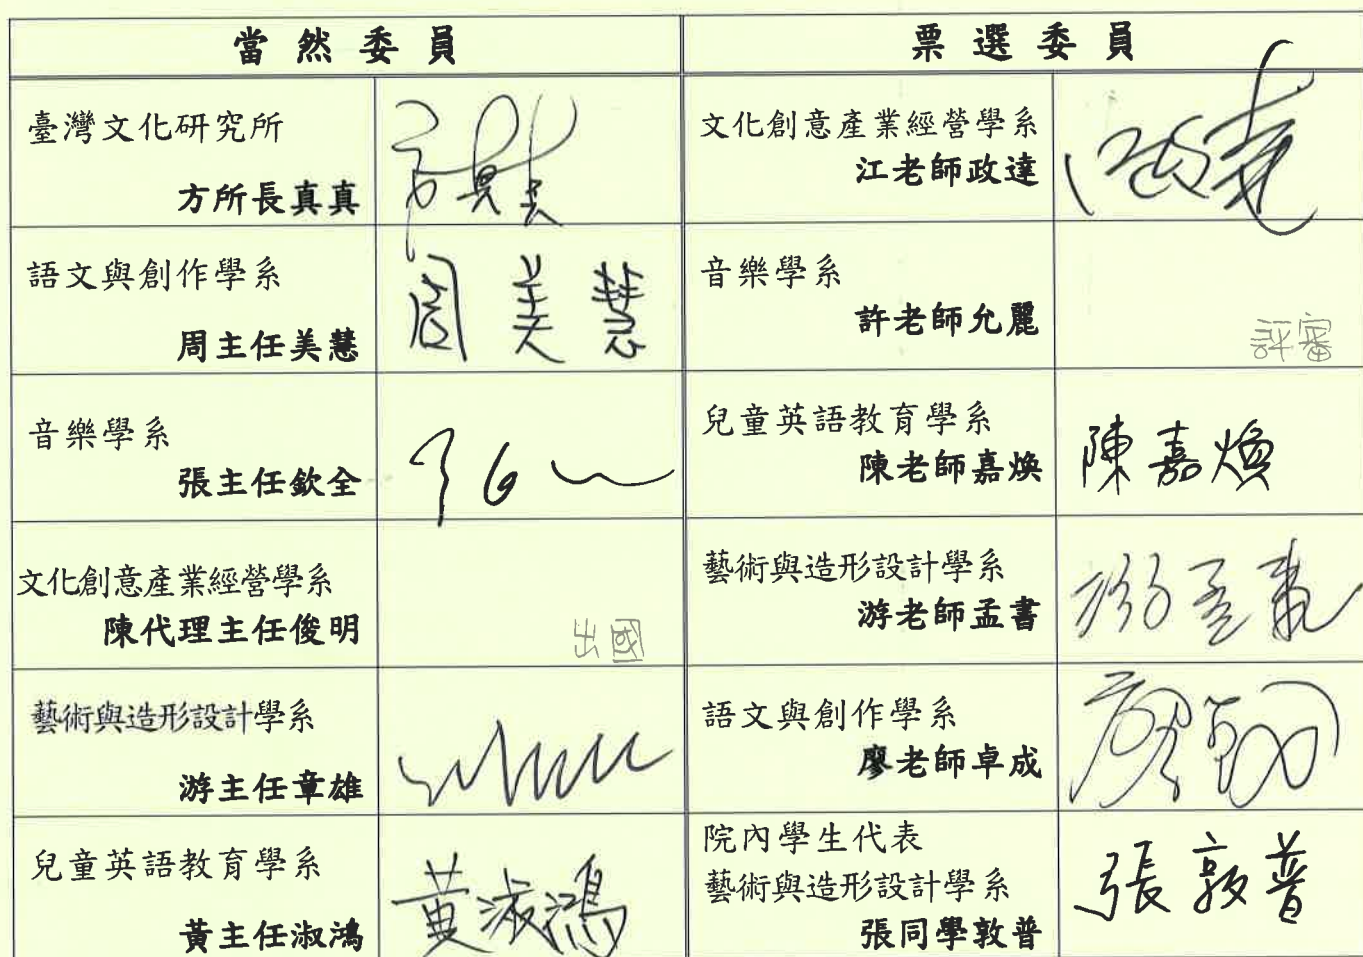 當然委員
票選委員
臺灣文化研究所
方所長真真
文化創意產業經營學系
江老師政達
語文與創作學系
周主任美慧
周美慧
音樂學系
許老師允麗
評審
音樂學系
張主任欽全
兒童英語教育學系
陳老師嘉煥
陳嘉煥
文化創意產業經營學系
陳代理主任俊明
出國
藝術與造形設計學系
游老師孟書
游孟書
藝術與造形設計學系
游主任章雄
語文與創作學系
廖老師卓成
兒童英語教育學系
黃主任淑鴻
黃淑鴻
院內學生代表
藝術與造形設計學系
張同學敦普
張敦普